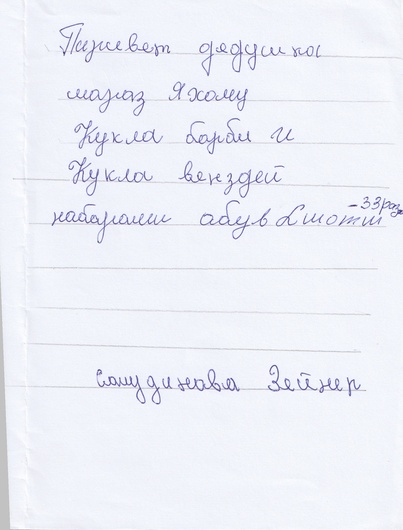 Пиževет дядушка
мараз Я хочу
Кукла барби и
Кукла венздей
набарами абув
-33раз
Самудинава Зейнер